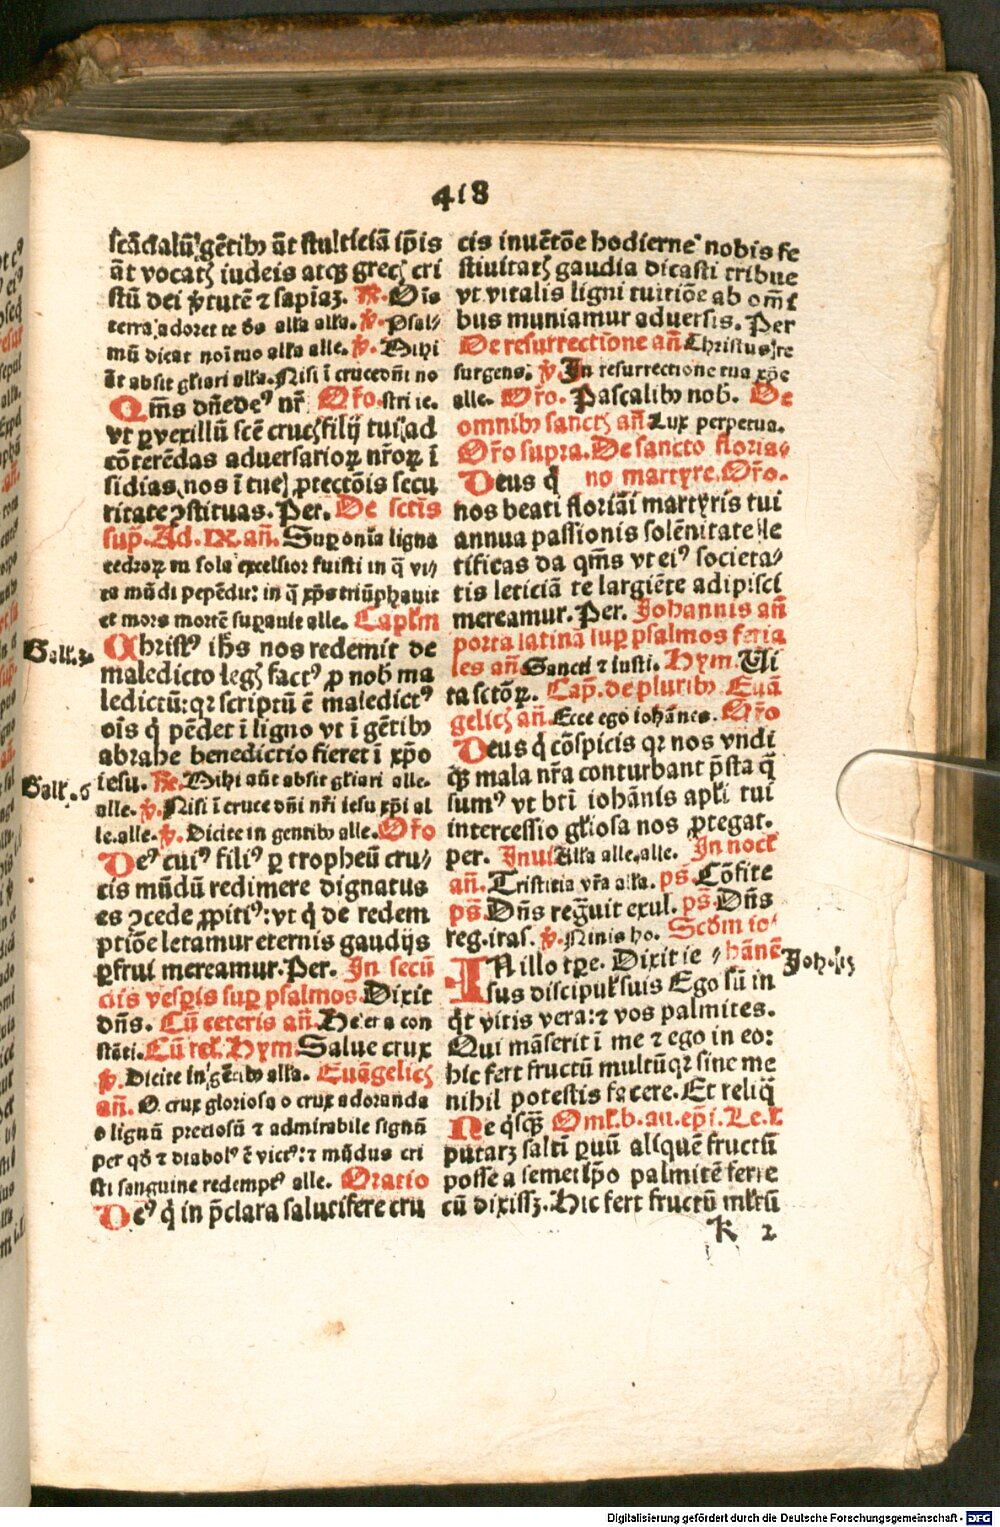 418
scādalū gētibꝰ aūt stulticiā ip̄is
āt vocatꝭ iudeis atqꝫ grecꝭ cri
stū dei ꝟtutē ⁊ sapiaꝫ. ℟. Ois
terra adoret te ds alla alla. ℣. Psal-
mū dicat noī tuo alla alle. ℣. Mihi
āt absit gl̄iari alla. Nisi ī cruce dn̄i no
Qm̄s dn̄e deꝰ nr̄ Or̄o. stri ie.
vt ꝑ vexillū scē crucꝭ filij tui ad
cōterēdas aduersarioꝝ nr̄oꝝ ī
sidias, nos ī tue ꝓtectōis secu
ritate ꝯstituas. Per. De sctīs
sup̄. Ad. IX. an̄. Suꝑ om̄ia ligna
cedroꝝ tu sola excelsior fuisti in q̄ vi-
ta mūdi pepēdit: in q̄ xp̄s triūphauit
et mors mortē suꝑauit alle. Capl̄m
Christꝰ ih̄s nos redemit de
maledicto legꝭ factꝰ ꝓ nob̄ ma
ledictū: qꝛ scriptū ē maledictꝰ
oīs q̄ pēdet ī ligno vt ī gētibꝰ
abrahe benedictio fieret ī xp̄o
iesu. ℟. Mihi aūt absit gl̄iari alle.
alle. ℣. Nisi ī cruce dn̄i nr̄i iesu xp̄i al
le. alle. ℣. Dicite in gentibꝰ alle. Or̄o
Deꝰ cuiꝰ filiꝰ ꝑ tropheū cru-
cis mūdū redimere dignatus
es ꝯcede ꝓpitiꝰ: vt q̄ de redem
ptiōe letamur eternis gaudijs
ꝑfrui mereamur. Per. In secū
dis vesꝑis suꝑ psalmos. Dixit
dn̄s. Cū ceteris an̄. Helena con
stāti. Cū rel̄. Hym. Salue crux
℣. Dicite in gētibꝰ alla. Euāgelicꝭ
an̄. O crux gloriosa o crux adoranda
o lignū preciosū ⁊ admirabile signū
per qd̄ ⁊ diabolꝰ ē victꝰ: ⁊ mūdus cri
sti sanguine redemptꝰ alle. Oratio
Deꝰ q̄ in p̄clara salutifere cru
Gall̄. 3.
Gall̄. 6
cis inuētōe hodierne nobis fe
stiuitatꝭ gaudia dicasti tribue
vt vitalis ligni tuitiōe ab om̄i
bus muniamur aduersis. Per
De resurrectione an̄ Christus re
surgens, ℣ In resurrectione tua xp̄e
alle. Or̄o. Pascalibꝰ nob̄. De
omnibꝰ sanctꝭ an̄ Lux perpetua.
Or̄o supra. De sancto floria-
no martyre. Or̄o.
Deus q̄
nos beati floriāi martyris tui
annua passionis solēnitate le
tificas da qm̄s vt eiꝰ societa-
tis leticiā te largiēte adipisci
mereamur. Per. Johannis an̄
porta latinā suꝑ psalmos feria
les an̄ Sancti ⁊ iusti. Hym. Vi
ta sctōꝝ. Cap̄. de pluribꝰ Euā
gelicꝭ an̄. Ecce ego iohānes. Or̄o
Deus q̄ cōspicis qꝛ nos vndi
qꝫ mala nr̄a conturbant p̄sta q̄
sumꝰ vt bt̄i iohānis apl̄i tui
intercessio gl̄iosa nos ꝓtegat.
per. Inui Alla alle. alle. In noct̄
an̄. Tristitia vr̄a alla. ps̄. Cōfite
ps̄. Dn̄s regn̄uit exul. ps̄. Dn̄s
reg. iras. ℣. Nimis ho. Scd̄m io
IN illo tꝑe. Dixit ie hānē
sus discipul̄ suis Ego sū in
q̄t vitis vera: ⁊ vos palmites.
Qui māserit ī me ⁊ ego in eo:
hic fert fructū multū qꝛ sine me
nihil potestis facere. Et reliq̄
Ne q̄sqꝫ Oml̄. b. au. ep̄i. Le. i.
putarꝫ saltī ꝑuū aliquē fructū
posse a semetip̄o palmitē ferre
cū dixissꝫ. Hic fert fructū ml̄tū
Joh. 15
k 2
Digitalisierung gefördert durch die Deutsche Forschungsgemeinschaft - DFG